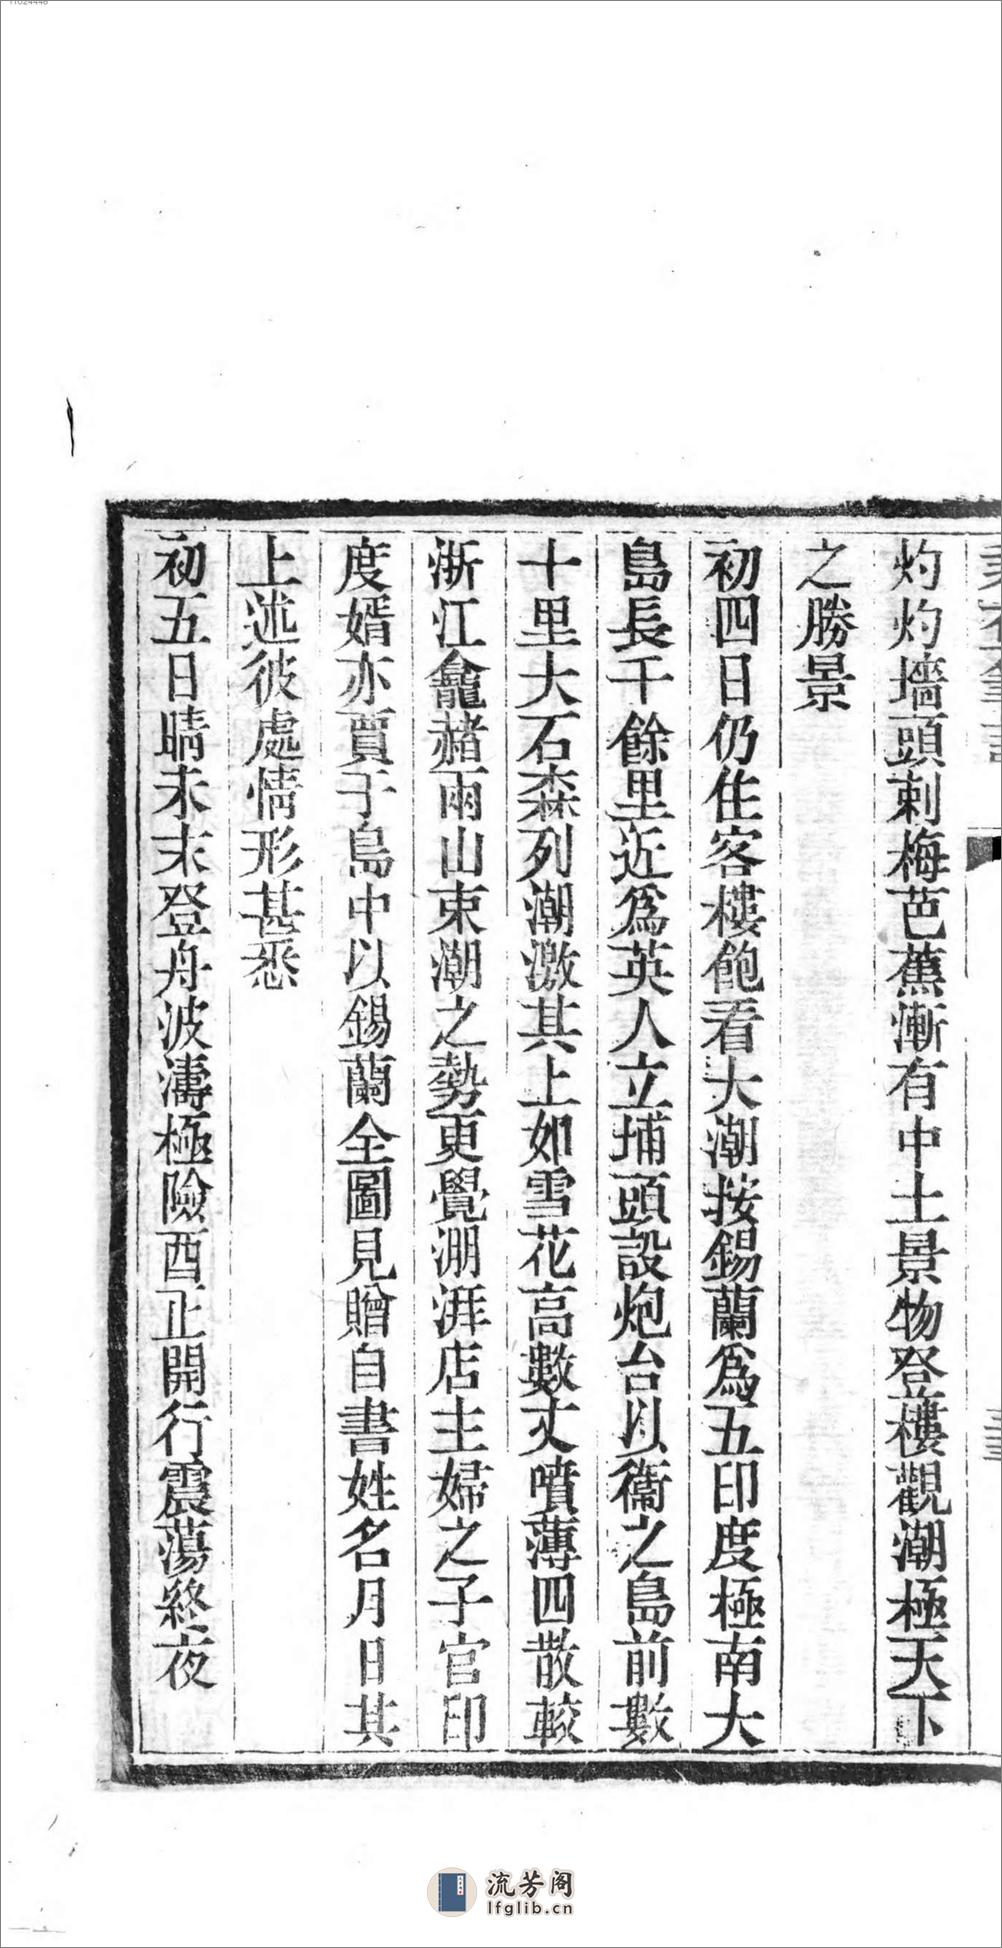 灼灼墻頭刺梅芭蕉漸有中土景物登樓觀潮極天下
之勝景
初四日仍住客樓飽看大潮按錫蘭爲五印度極南大
島長千餘里近爲英人立埔頭設炮台以衞之島前數
十里大石森列潮激其上如雪花高數丈噴薄四散較
浙江龕赭兩山束潮之勢更覺淜湃店主婦之子官印
度婿亦賈于島中以錫蘭全圖見贈自書姓名月日其
上述彼處情形甚悉
初五日晴未末登舟波濤極險酉正開行震蕩終夜
流芳阁
lfglib.cn
11024446